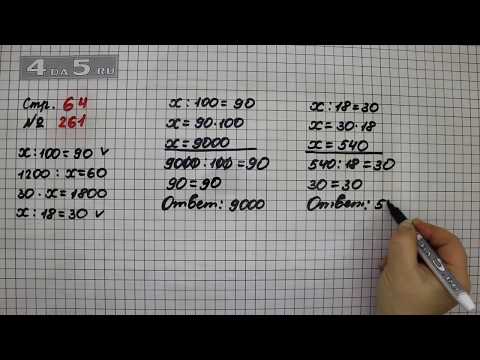 4 DA 5 RU
Стр. 64
№ 261
x : 100 = 90 ✓
1200 : x = 60
30 · x = 1800
x : 18 = 30 ✓
x : 100 = 90
x = 90 · 100
x = 9000
9000 : 100 = 90
90 = 90
Ответ: 9000
x : 18 = 30
x = 30 · 18
x = 540
540 : 18 = 30
30 = 30
Ответ: 5